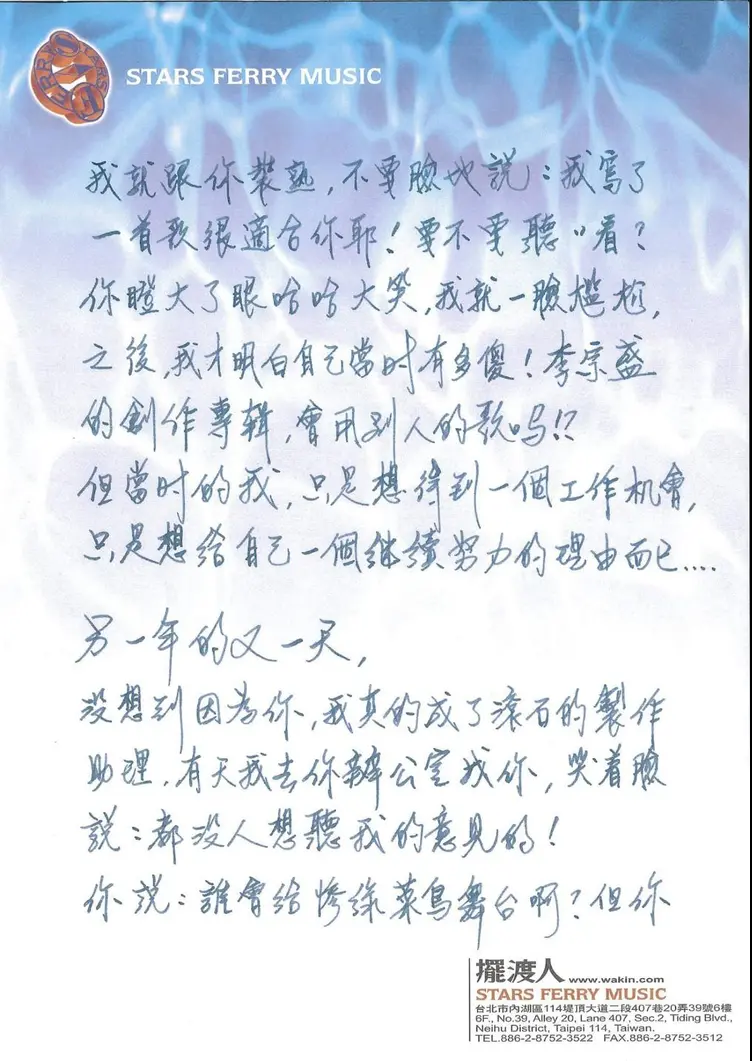 STARS FERRY MUSIC
我就跟你裝熟,不要臉地說:我寫了
一首歌很適合你耶!要不要聽〃看?
你瞪大了眼哈哈大笑,我就一臉尷尬,
之後,我才明白自己當时有多傻!李宗盛
的創作專輯,會用别人的歌吗!?
但當时的我,只是想得到一個工作机會,
只是想給自己一個继續努力的理由而已....
另一年的又一天,
没想到因為你,我真的成了滾石的製作
助理,有天我去你辦公室找你,哭着臉
說:都没人想聽我的意見的!
你說:誰會給慘綠菜鳥舞台啊?但你
擺渡人 www.wakin.com
STARS FERRY MUSIC
台北市內湖區114堤頂大道二段407巷20弄39號6樓
6F., No.39, Alley 20, Lane 407, Sec.2, Tiding Blvd.,
Neihu District, Taipei 114, Taiwan.
TEL.886-2-8752-3522 FAX.886-2-8752-3512